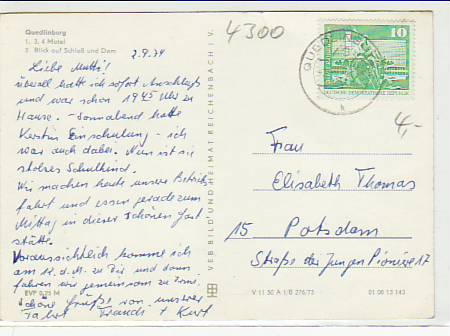 Quedlinburg
1, 3, 4 Motel
2 Blick auf Schloß und Dom
2.9.74
Liebe Mutti!
überall hatte ich sofort Anschluß
und war schon 19 45 Uhr zu
Hause. – Sonnabend hatte
Kerstin Einschulung – ich
war auch dabei. Nun ist sie
stolzes Schulkind.
Wir machen heute unsere Betriebs-
fahrt und essen gerade zum
Mittag in dieser schönen Gast-
stätte.
Voraussichtlich komme ich
am 12. d. M. zu Dir und dann
fahren wir gemeinsam zu
Schöne Grüße von unserer
Fahrt
+ Kurt
EVP 0,25 M
VEB BILD UND HEIMAT REICHENBACH I. V.
4300
10
DEUTSCHE DEMOKRATISCHE REPUBLIK
4,-
Frau
Elisabeth Thomas
15 Potsdam
Straße der Jungen Pioniere 17
V 11 50 A 1/B 276/73
01 06 13 143